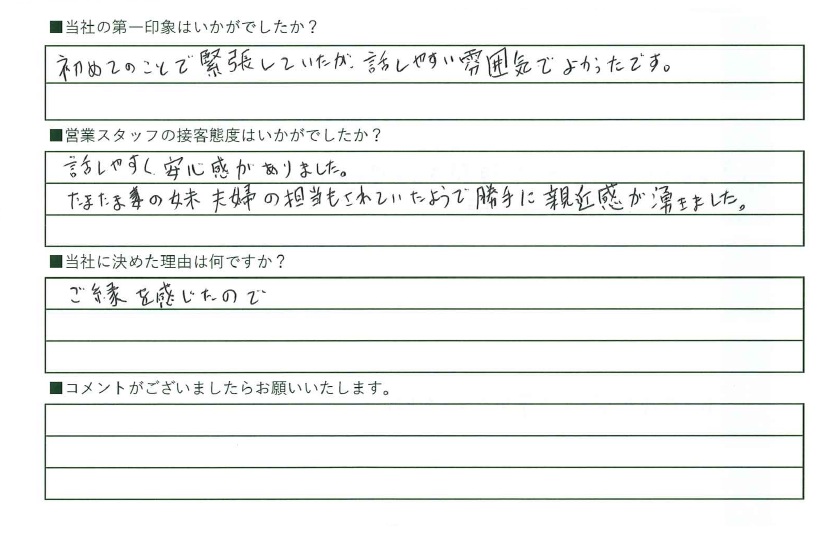 ■当社の第一印象はいかがでしたか？
初めてのことで緊張していたが、話しやすい雰囲気でよかったです。
■営業スタッフの接客態度はいかがでしたか？
話しやすく、安心感がありました。
たまたま妻の妹夫婦の担当もされていたようで勝手に親近感が湧きました。
■当社に決めた理由は何ですか？
ご縁を感じたので
■コメントがございましたらお願いいたします。